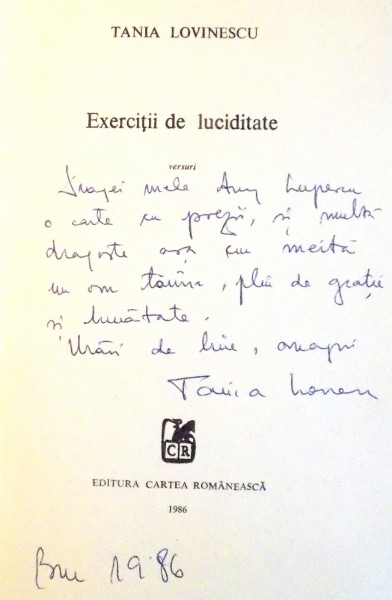 TANIA LOVINESCU
Exerciții de luciditate
versuri
Dragei mele Any Lupescu
o carte cu poezii, și multă
dragoste așa cum merită
un om tânăr, plin de grație
și bunătate.
Urări de bine, omagii
Tania Lovinescu
CR
EDITURA CARTEA ROMÂNEASCĂ
1986
1986